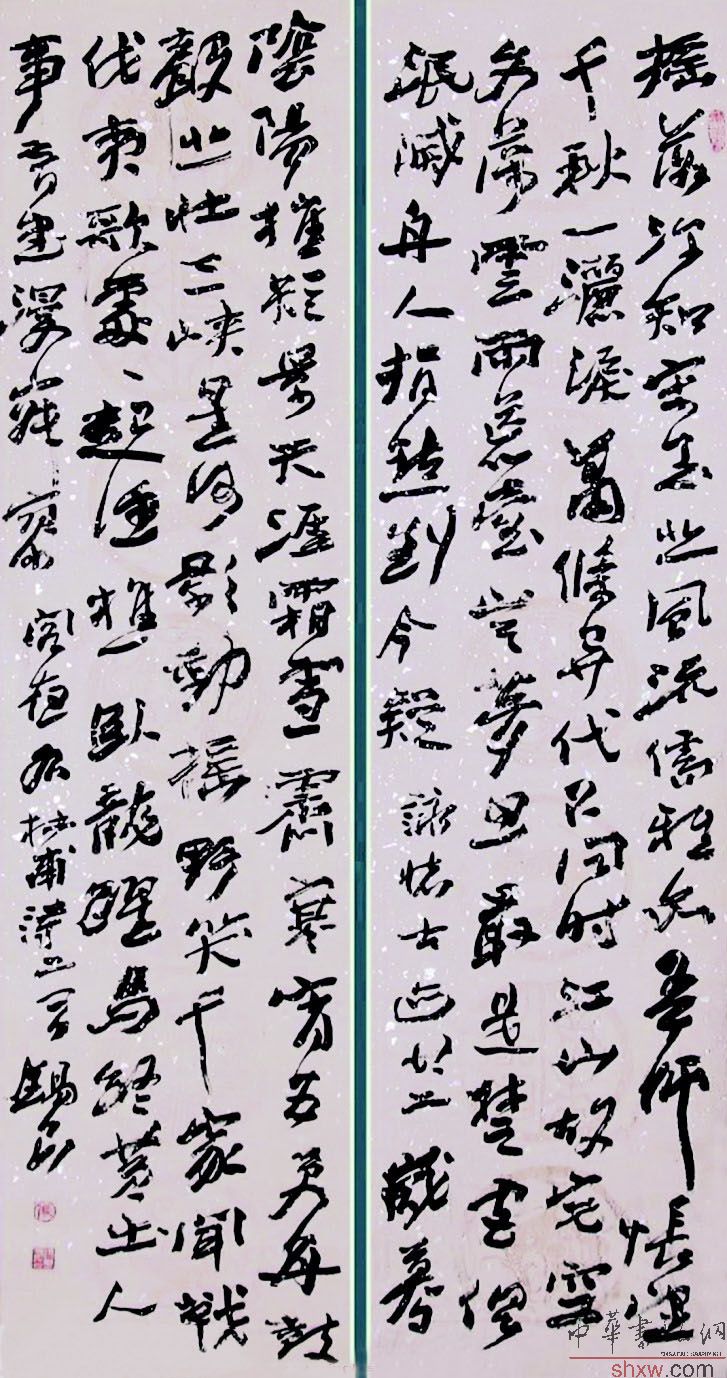 搖落深知宋玉悲風流儒雅亦吾師悵望
千秋一灑淚蕭條異代不同時江山故宅空
文藻雲雨荒臺豈夢思最是楚宮俱
泯滅舟人指點到今疑 詠懷古迹其二 歲暮
陰陽催短景天涯霜雪霽寒宵五更角鼓
聲悲壯三峽星河影動搖野哭千家聞戰
伐夷歌處々起漁樵臥龍躍馬終黃土人
事音書漫寂寥 閣夜 右杜甫詩二首 錫
中華書法網
shxw.com